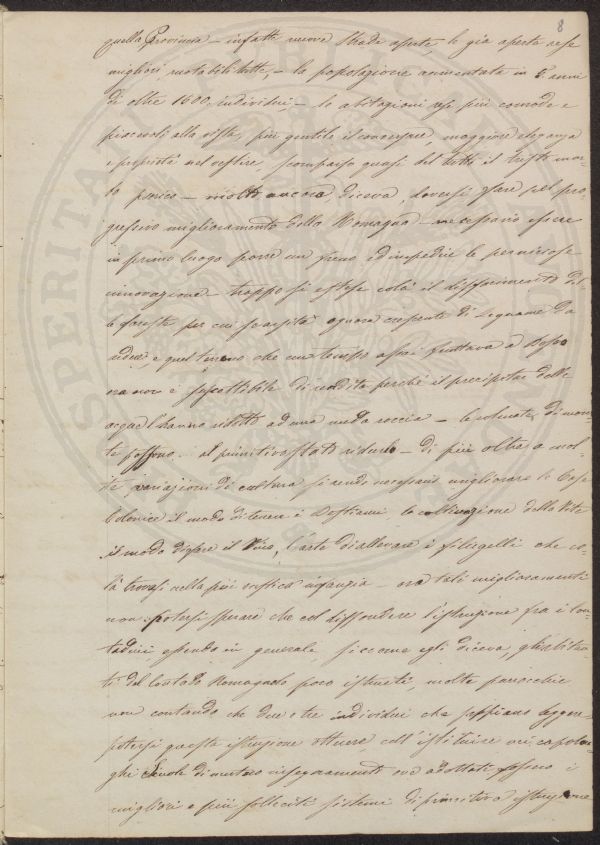 8
quella Provincia – infatti nuove strade aperte le già aperte rese
migliori, notabilmente, – la popolazione aumentata in 5 anni
di oltre 1500 individui, – le abitazioni rese più comode e
piacevoli alla vista, più gentile il conversare, maggiore eleganza
e proprietà nel vestire, scomparso quasi del tutto il
– molto ancora, diceva, doversi fare pel pro¬
gressivo miglioramento della Romagna – necessario essere
in primo luogo porre un freno ed impedire le perniciose
innovazioni – troppo si estese colà il diffocimento del¬
le foreste per cui scarsità ognora crescente di Legname da
ardere, e quel terreno che un tempo assai fruttava a Bosco
ora non è suscettibile di rendita perché il precipitar delle
acque l'hanno ridotto ad una nuda roccia – le volute di mon¬
te possono al primitivo stato ridurle – di più oltre a mol¬
te variazioni di cultura si rende necessario migliorare le Case
Coloniche il modo di tenere i Bestiami la coltivazione della Vite
il modo di fare il Vino, l'arte di allevare i filugelli che co¬
là trovasi nella più rustica infanzia – ora tali miglioramenti
non potersi sperare che col diffondere l'istruzione fra i Con¬
tadini, essendo in generale, siccome egli diceva, gli abitan¬
ti del Contado Romagnolo poco istruiti, molte parocchie
non contando che due o tre individui che sappiano leggere –
potersi questa istruzione ottenere coll'istituire nei capoluo¬
ghi Scuole di mutuo insegnamento ove adottati fossero i
migliori e più solleciti sistemi di primitiva istruzione